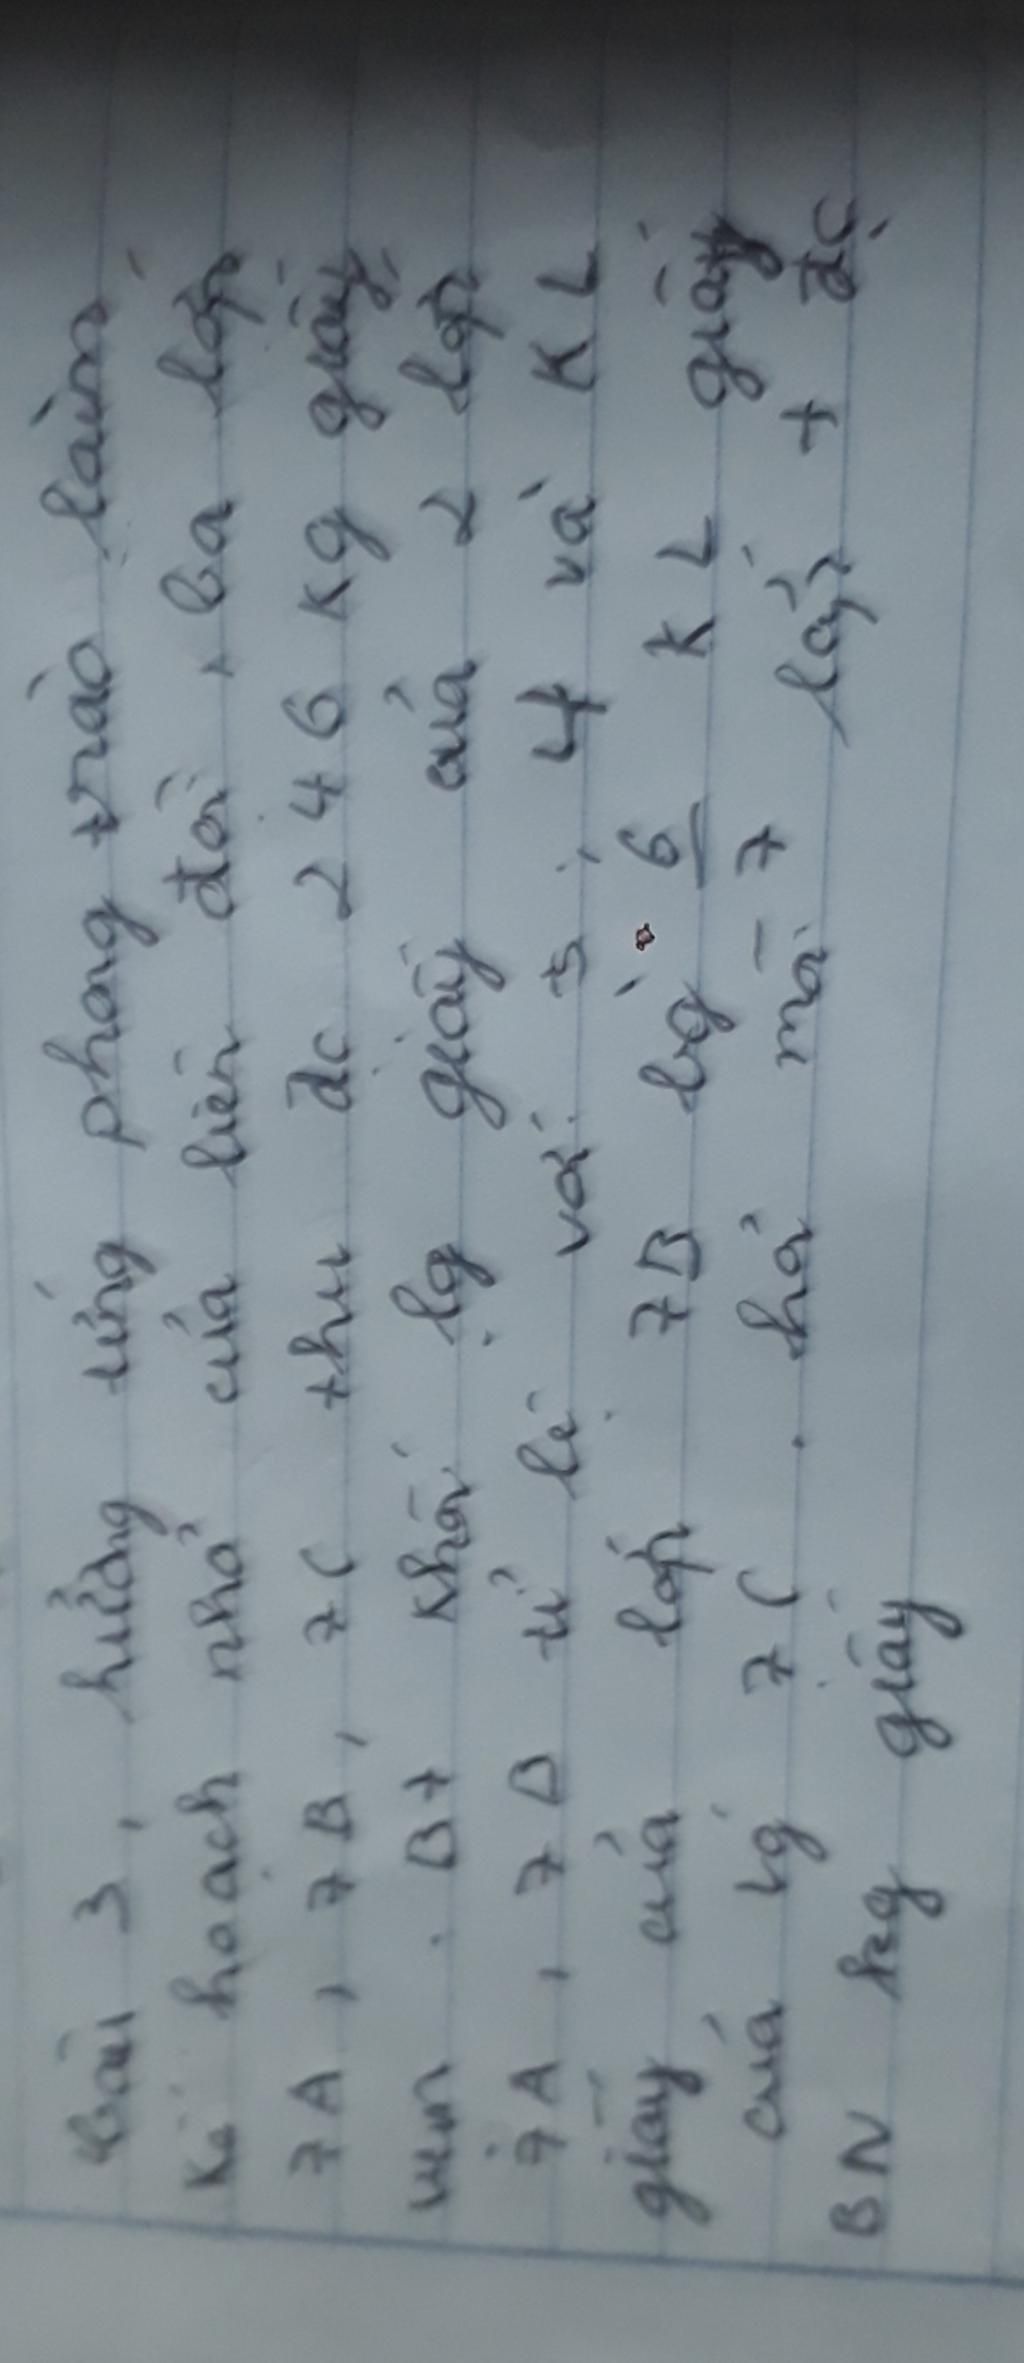 bài 3, hưởng ứng phong trào làm
kế hoạch nhỏ của liên đội, ba lớp
7A, 7B, 7C thu đc 246 kg giấy
vụn. Bt khối lg giấy của 2 lớp
7A, 7B tỉ lệ với 5; 4 và KL
giấy của lớp 7B bằg 6 KL giấy
của lg 7C. hỏi mỗi 7 lớp + đc
BN kg giấy